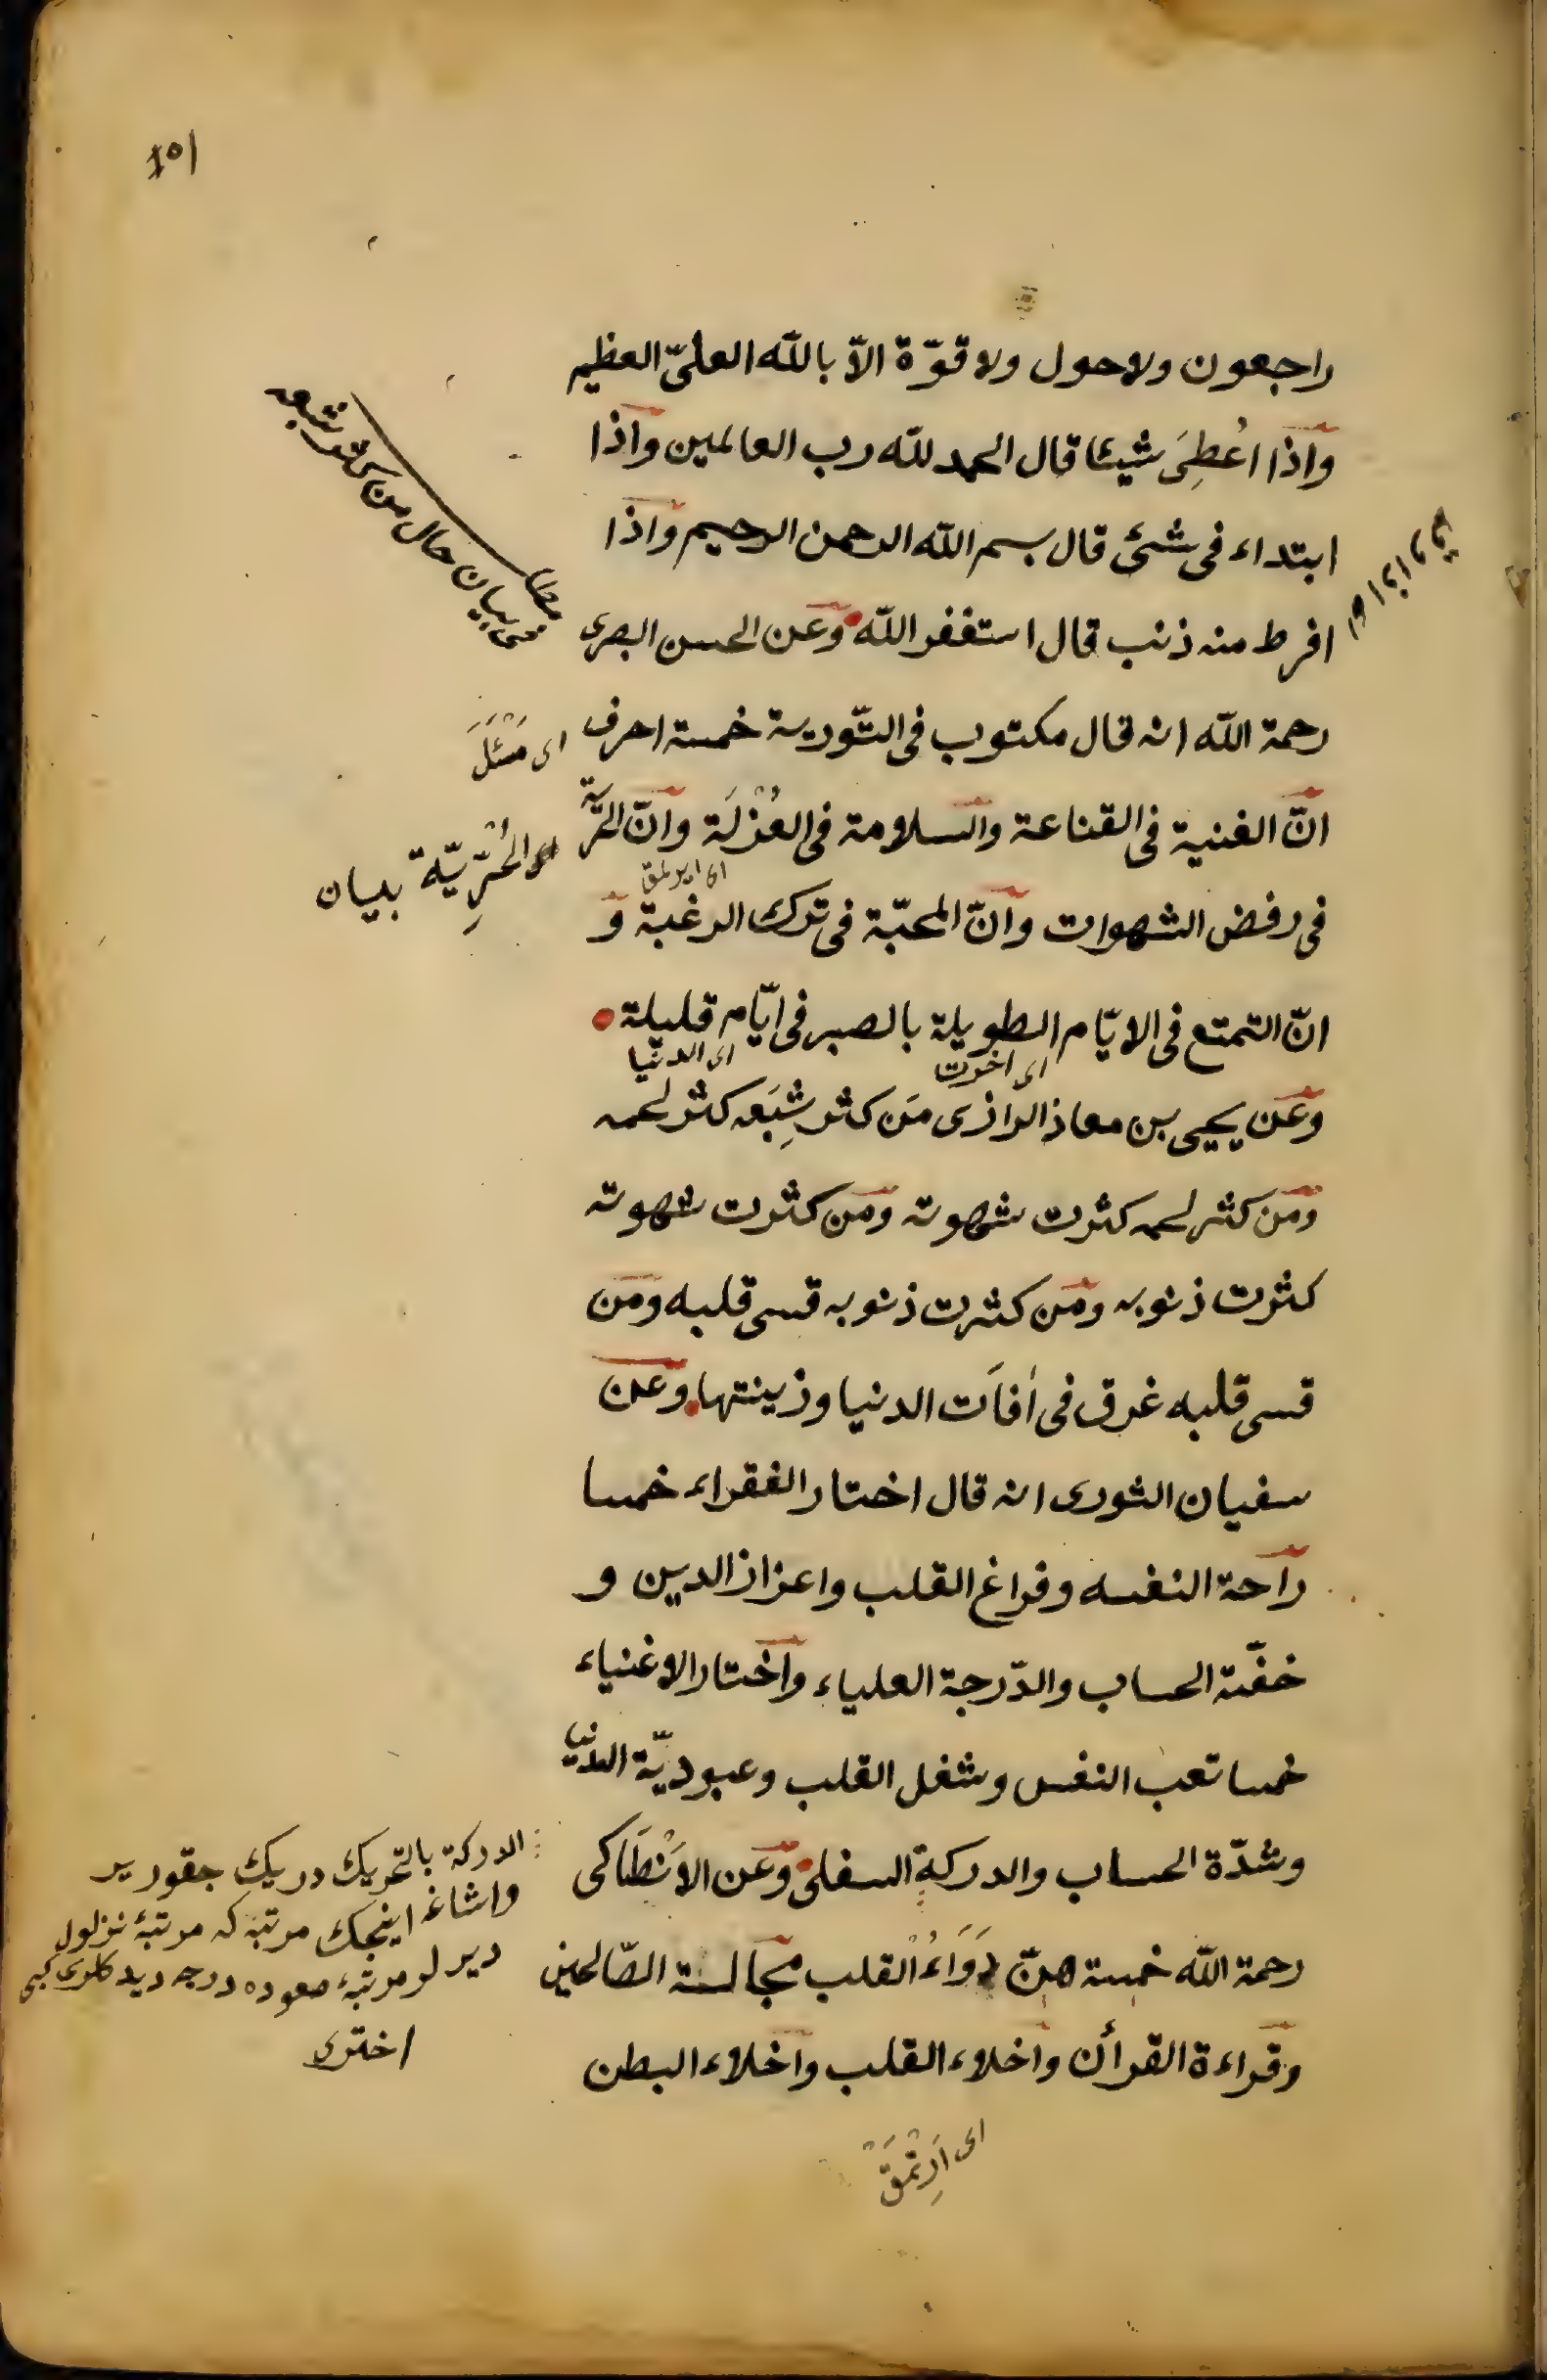 ١٥١
راجعون ولا حول ولا قوّة الّا باللّه العلىّ العظيم
وَاذا اُعطِىَ شيئا قال الحمد للّه رب العالمين وَاذا
ابتداء فى شئ قال بسم اللّه الرحمن الرحيم وَاذا
افرط منه ذنب قال استغفر اللّه وَعَن الحسن البصرى
رحمة اللّه انه قال مكتوب فى التّورية خمسة احرف
اى مَسْئَلَ
انّ الغنية فى القناعة وَالسلامة فى العُزْلَة وَانّ الحرّيّة
الحُرِّيّة بيان
فى رفض الشهوات وَانّ المحبّة فى ترك الرغبة وَ
انّ التمتع فى الايّام الطويلة بالصبر فى ايّام قليلة
اى اخرت
اى الدنيا
وَعَن يحيى بن معاذ الرازى مَن كثر شِبَعه كثر لحمه
وَمَن كثر لحمه كثرت شهوته وَمَن كثرت شهوته
كثرت ذنوبه وَمَن كثرت ذنوبه قسى قلبه وَمَن
قسى قلبه غرق فى اٰفاَت الدنيا وزينتها وَعَن
سفيان الثورى انه قال اختار الفقراء خمسا
رَاحة النفسه وفراغ القلب واعزاز الدين و
خفّة الحساب والدّرجة العلياء وَاختار الاغنياء
خمسا تعب النفس وشغل القلب وعبوديّة الدّنيا
وشدّة الحساب والدركةِ السفلى وَعَن الاَنْطَاكى
رحمة اللّه خمسة هنّ دَوَاءُ القلب مجَالسة الصّالحين
وقراءة القرأن وَاخلاء القلب وَاخلاء البطن
فى بيان حال من كثر شبعه
الدركة بالتحريك دريك جقوردير
واشاغه اينجك مرتبه كه مرتبۀ نزلول
دير لر مرتبۀ صعوده درجه ديدكلرى كبى
اخترى